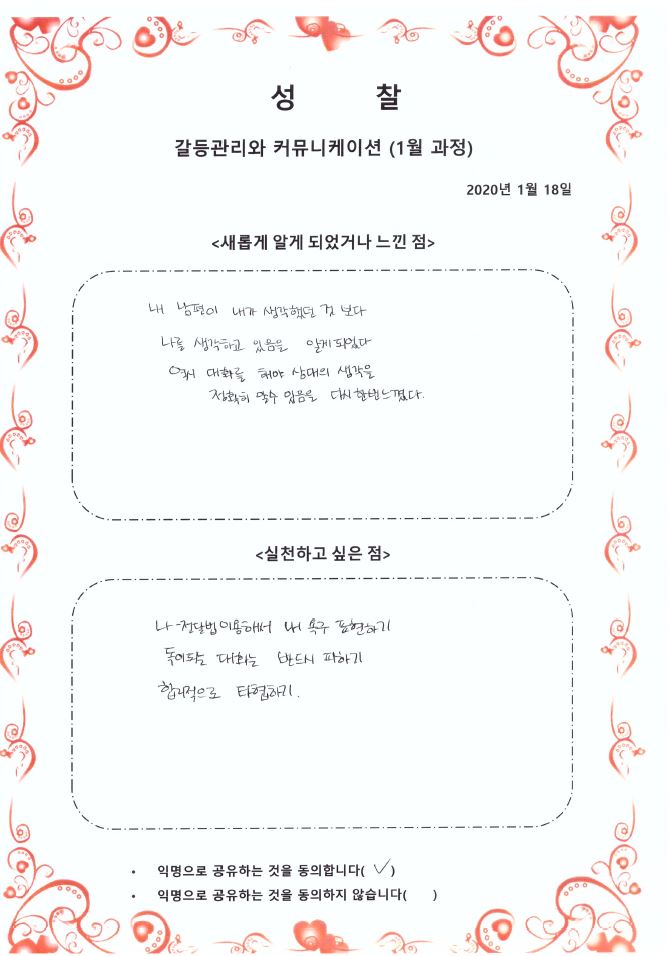 성 찰
갈등관리와 커뮤니케이션 (1월 과정)
2020년 1월 18일
<새롭게 알게 되었거나 느낀 점>
내 남편이 내가 생각했던 것 보다
나를 생각하고 있음을 알게되었다
역시 대화를 해야 상대의 생각을
정확히 알수 있음을 다시한번느꼈다.
<실천하고 싶은 점>
나-전달법이용해서 내 욕구 표현하기
독이되는 대화는 반드시 피하기
합리적으로 타협하기.
• 익명으로 공유하는 것을 동의합니다( ✓ )
• 익명으로 공유하는 것을 동의하지 않습니다( )